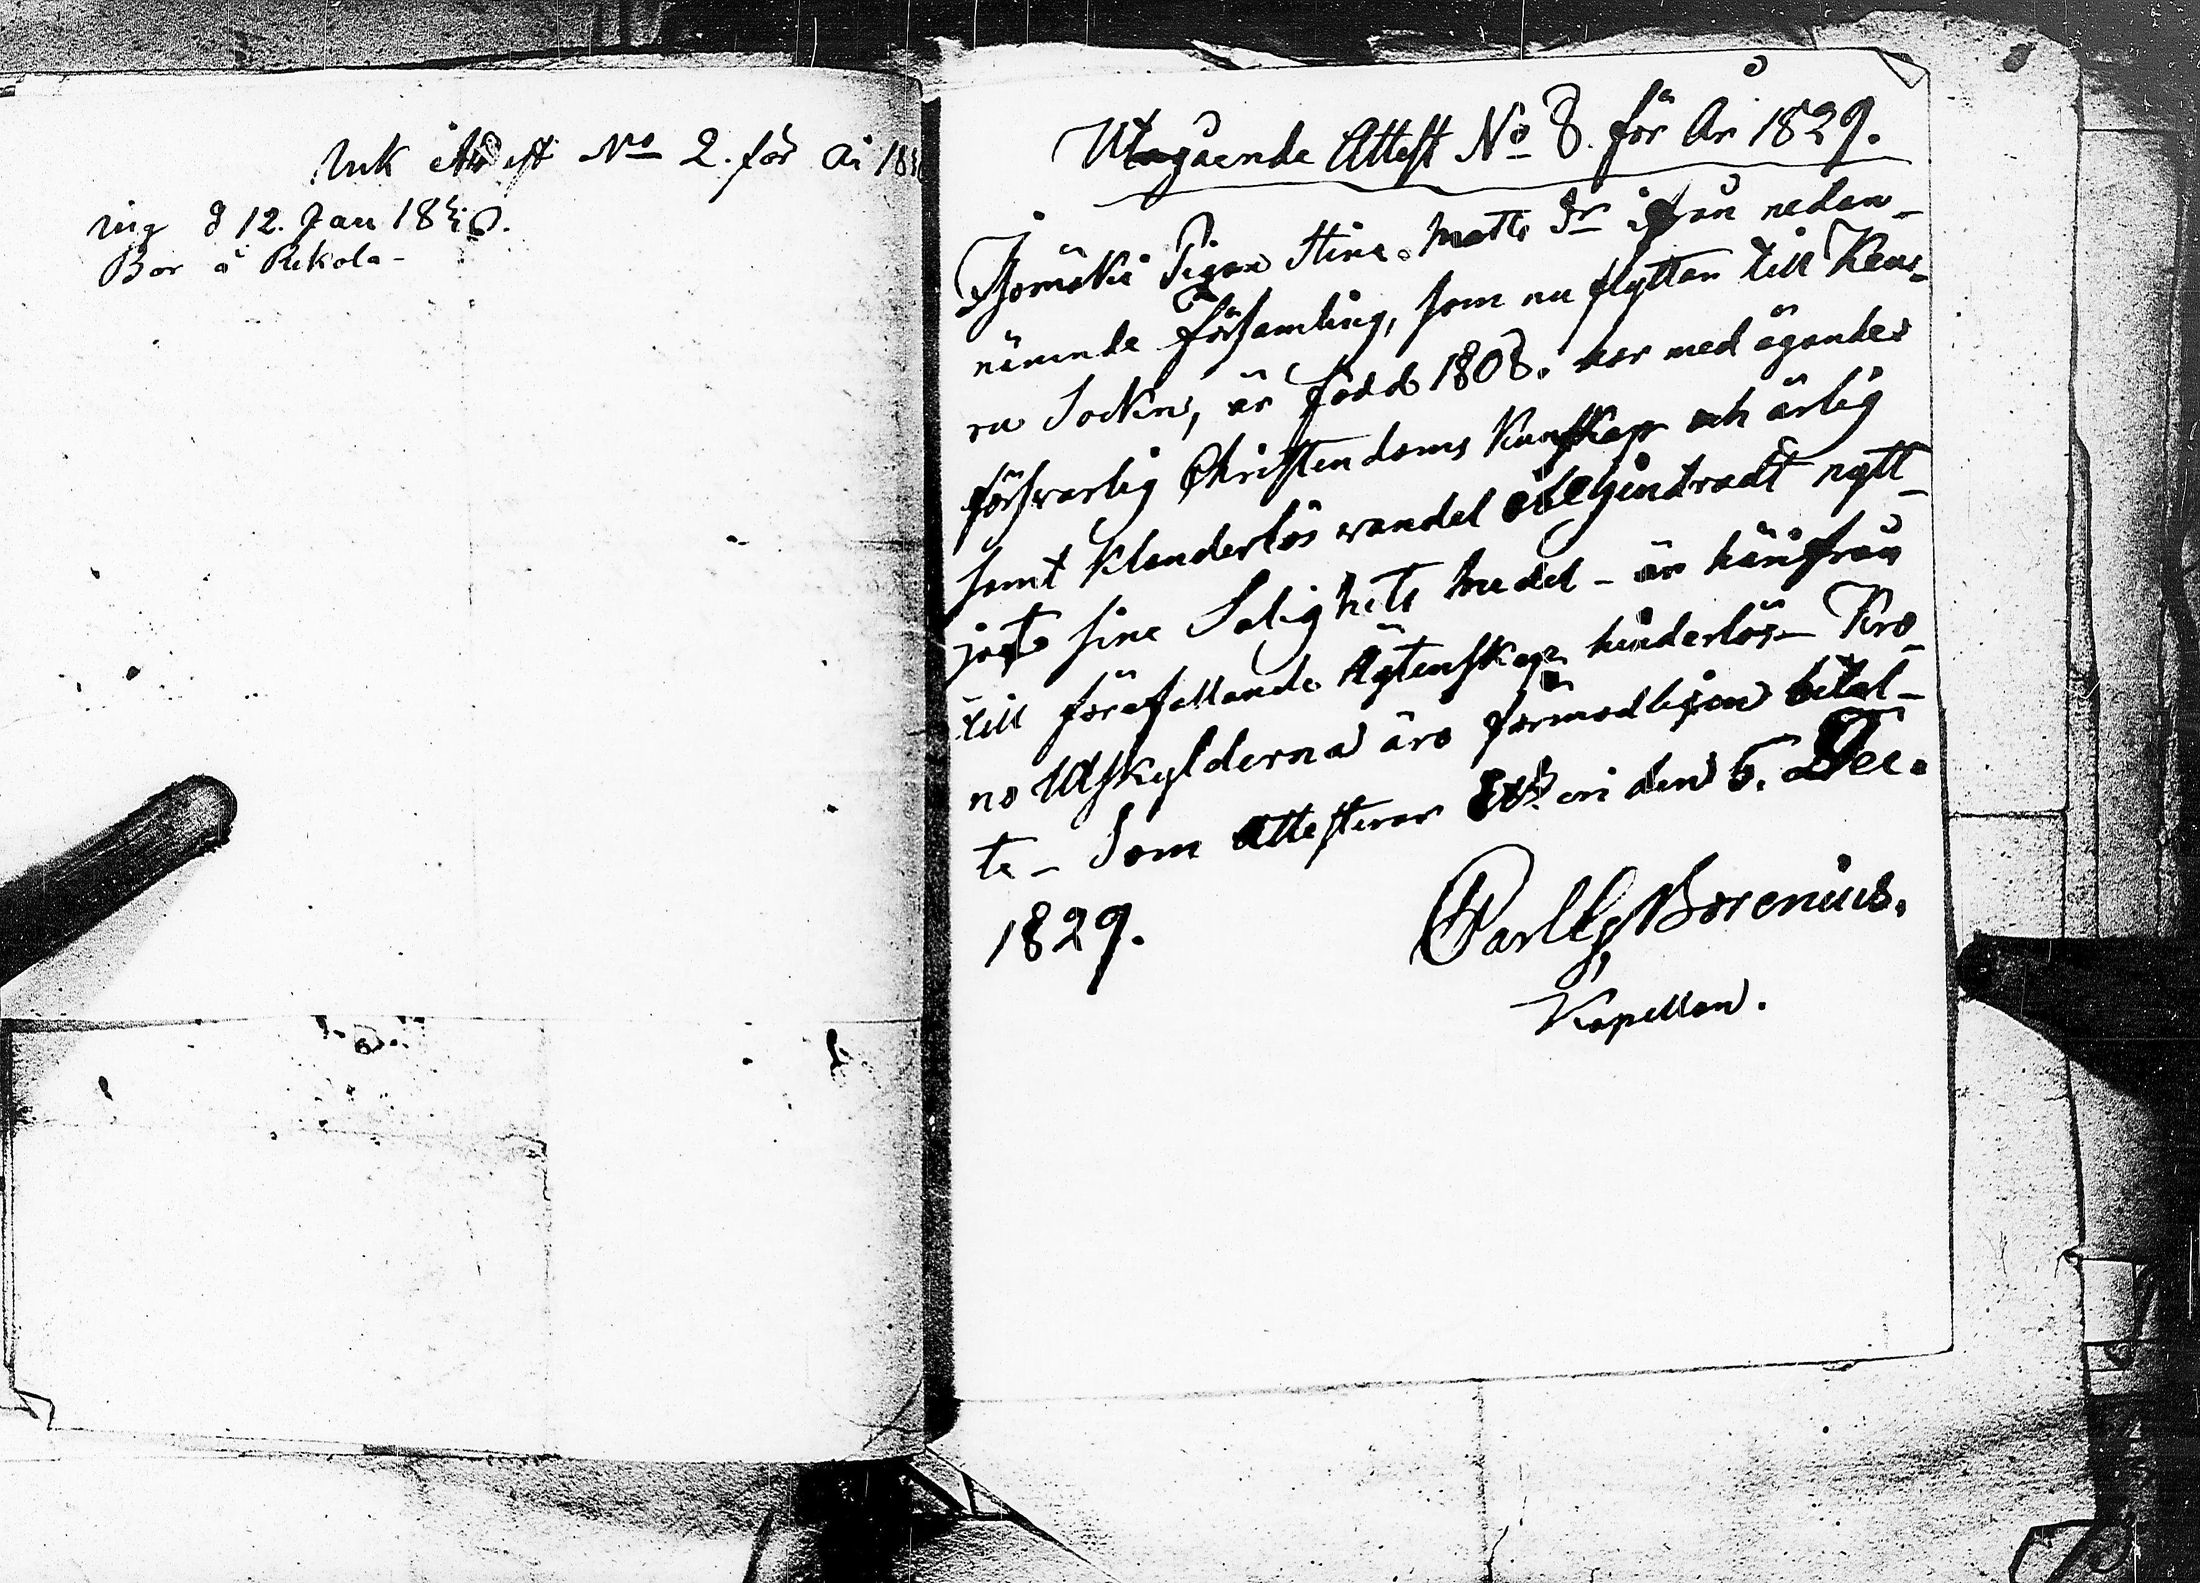 Ink Attest No 2. för År 18
ing d 12. Jan 1830.
Bor å Rekola -
Utgående Attest No 8. för År 1829.
Pigan Stina Matts Dr ifrån nedan-
nämnde församling, som nu flyttar till Keu-
ru Sockn, är född 1808. har med ägandes
försvarlig Christendoms Kunskap och ärlig
samt Klanderlös vandel obehindradt nytt-
jat sina Salighets medel - är härifrån
till förefallande Ägtenskap hinderlös - Kro-
no Utskylderna äro förmodligen betal-
te - Som Attesterar Etseri den 5. Dec.
1829.
Carl G. Borenius.
Kapellan.